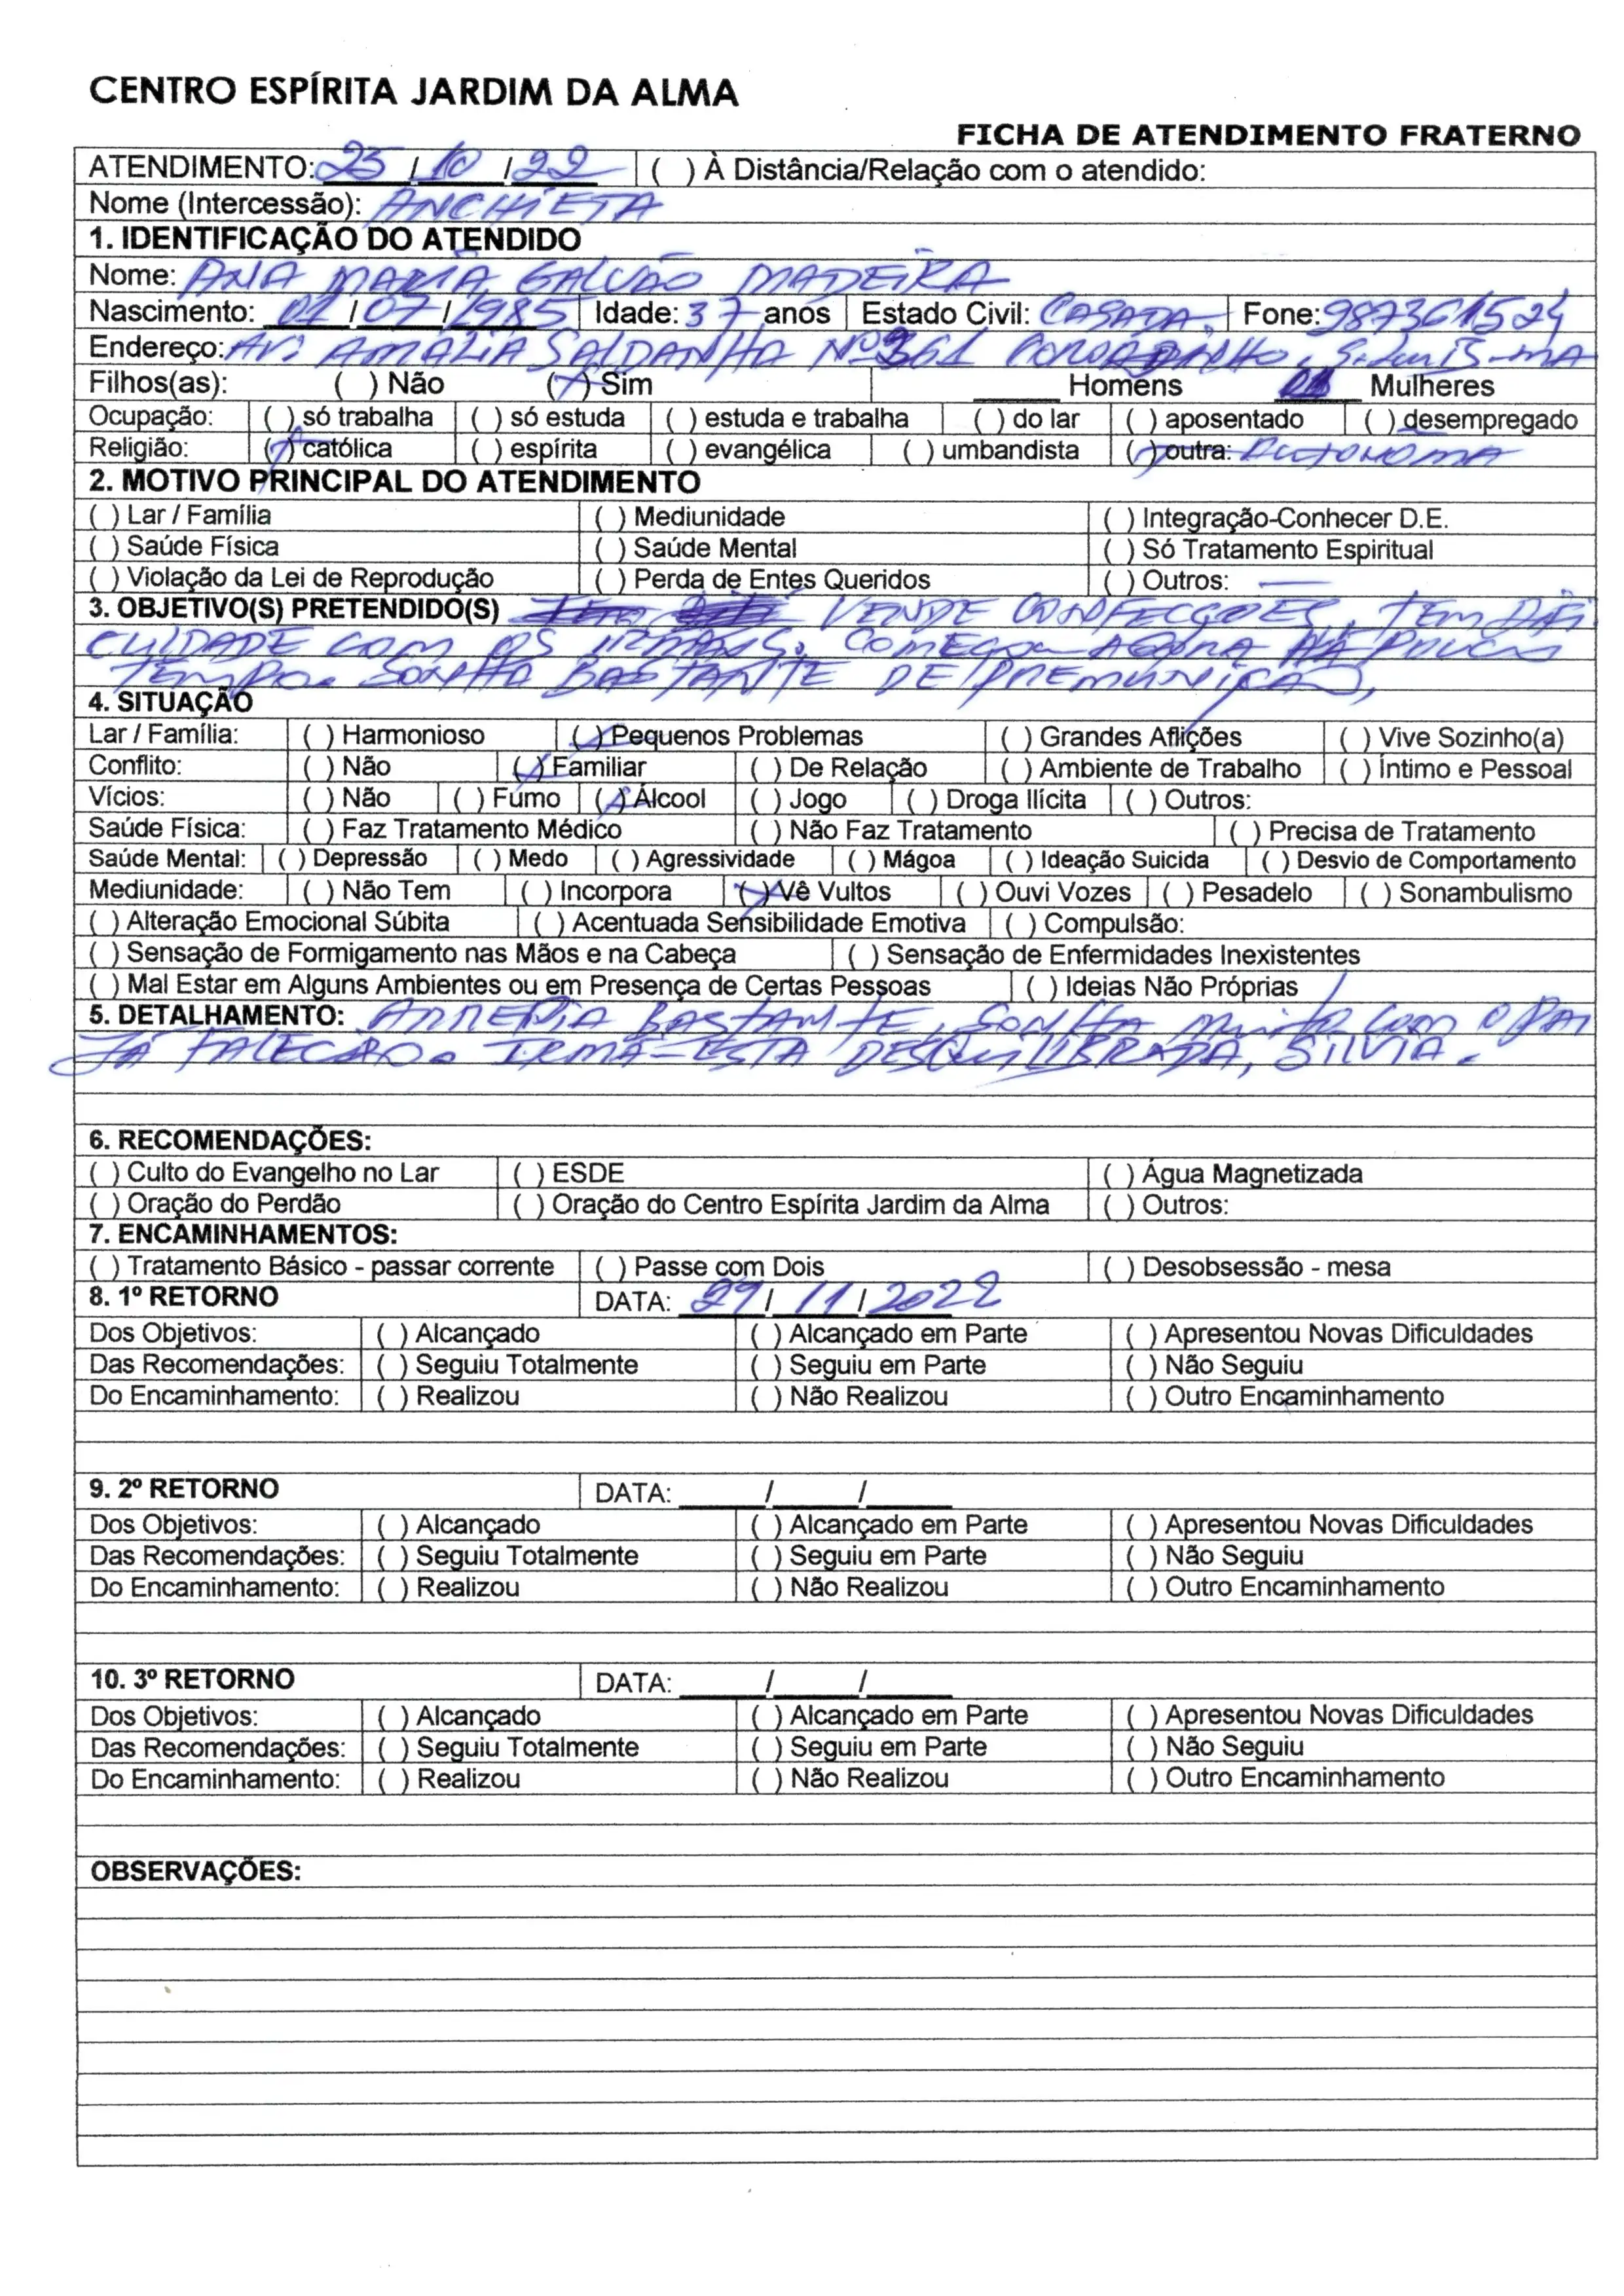 CENTRO ESPÍRITA JARDIM DA ALMA
FICHA DE ATENDIMENTO FRATERNO
ATENDIMENTO: 25 / 10 / 22 ( ) À Distância/Relação com o atendido:
Nome (Intercessão): ANCHIETA
1. IDENTIFICAÇÃO DO ATENDIDO
Nome: ANA MARIA GALVÃO MADEIRA
Nascimento: 01 / 07 / 1985 Idade: 37 anos Estado Civil: CASADA. Fone: 987361524
Endereço: AV: AMALIA SALDANHA Nº 361 COROADINHO, S. Luis-MA
Filhos(as): ( ) Não (X) Sim ____ Homens 01 Mulheres
Ocupação: ( ) só trabalha ( ) só estuda ( ) estuda e trabalha ( ) do lar ( ) aposentado ( ) desempregado
Religião: (X) católica ( ) espírita ( ) evangélica ( ) umbandista (X) outra: AUTONOMA
2. MOTIVO PRINCIPAL DO ATENDIMENTO
( ) Lar / Família ( ) Mediunidade ( ) Integração-Conhecer D.E.
( ) Saúde Física ( ) Saúde Mental ( ) Só Tratamento Espiritual
( ) Violação da Lei de Reprodução ( ) Perda de Entes Queridos ( ) Outros: —
3. OBJETIVO(S) PRETENDIDO(S) VENDE CONFECÇOES, TEM
CUIDADE COM OS IRMÃOS. COMEÇOU AGORA HÁ POUCO
TEMPO. SONHA BASTANTE DE PREMUNIÇÃO,
4. SITUAÇÃO
Lar / Família: ( ) Harmonioso (X) Pequenos Problemas ( ) Grandes Aflições ( ) Vive Sozinho(a)
Conflito: ( ) Não (X) Familiar ( ) De Relação ( ) Ambiente de Trabalho ( ) Íntimo e Pessoal
Vícios: ( ) Não ( ) Fumo (X) Álcool ( ) Jogo ( ) Droga Ilícita ( ) Outros:
Saúde Física: ( ) Faz Tratamento Médico ( ) Não Faz Tratamento ( ) Precisa de Tratamento
Saúde Mental: ( ) Depressão ( ) Medo ( ) Agressividade ( ) Mágoa ( ) Ideação Suicida ( ) Desvio de Comportamento
Mediunidade: ( ) Não Tem ( ) Incorpora (X) Vê Vultos ( ) Ouvi Vozes ( ) Pesadelo ( ) Sonambulismo
( ) Alteração Emocional Súbita ( ) Acentuada Sensibilidade Emotiva ( ) Compulsão:
( ) Sensação de Formigamento nas Mãos e na Cabeça ( ) Sensação de Enfermidades Inexistentes
( ) Mal Estar em Alguns Ambientes ou em Presença de Certas Pessoas ( ) Ideias Não Próprias
5. DETALHAMENTO: ARREPIA BASTANTE, SONHA muito com o PAI
JÁ FALECIDO. IRMÃ-ESTA DESQUILIBRADA, SILVIA.
6. RECOMENDAÇÕES:
( ) Culto do Evangelho no Lar ( ) ESDE ( ) Água Magnetizada
( ) Oração do Perdão ( ) Oração do Centro Espírita Jardim da Alma ( ) Outros:
7. ENCAMINHAMENTOS:
( ) Tratamento Básico - passar corrente ( ) Passe com Dois ( ) Desobsessão - mesa
8. 1º RETORNO DATA: 29 / 11 / 2022
Dos Objetivos: ( ) Alcançado ( ) Alcançado em Parte ( ) Apresentou Novas Dificuldades
Das Recomendações: ( ) Seguiu Totalmente ( ) Seguiu em Parte ( ) Não Seguiu
Do Encaminhamento: ( ) Realizou ( ) Não Realizou ( ) Outro Encaminhamento
9. 2º RETORNO DATA: ____/____/____
Dos Objetivos: ( ) Alcançado ( ) Alcançado em Parte ( ) Apresentou Novas Dificuldades
Das Recomendações: ( ) Seguiu Totalmente ( ) Seguiu em Parte ( ) Não Seguiu
Do Encaminhamento: ( ) Realizou ( ) Não Realizou ( ) Outro Encaminhamento
10. 3º RETORNO DATA: ____/____/____
Dos Objetivos: ( ) Alcançado ( ) Alcançado em Parte ( ) Apresentou Novas Dificuldades
Das Recomendações: ( ) Seguiu Totalmente ( ) Seguiu em Parte ( ) Não Seguiu
Do Encaminhamento: ( ) Realizou ( ) Não Realizou ( ) Outro Encaminhamento
OBSERVAÇÕES: